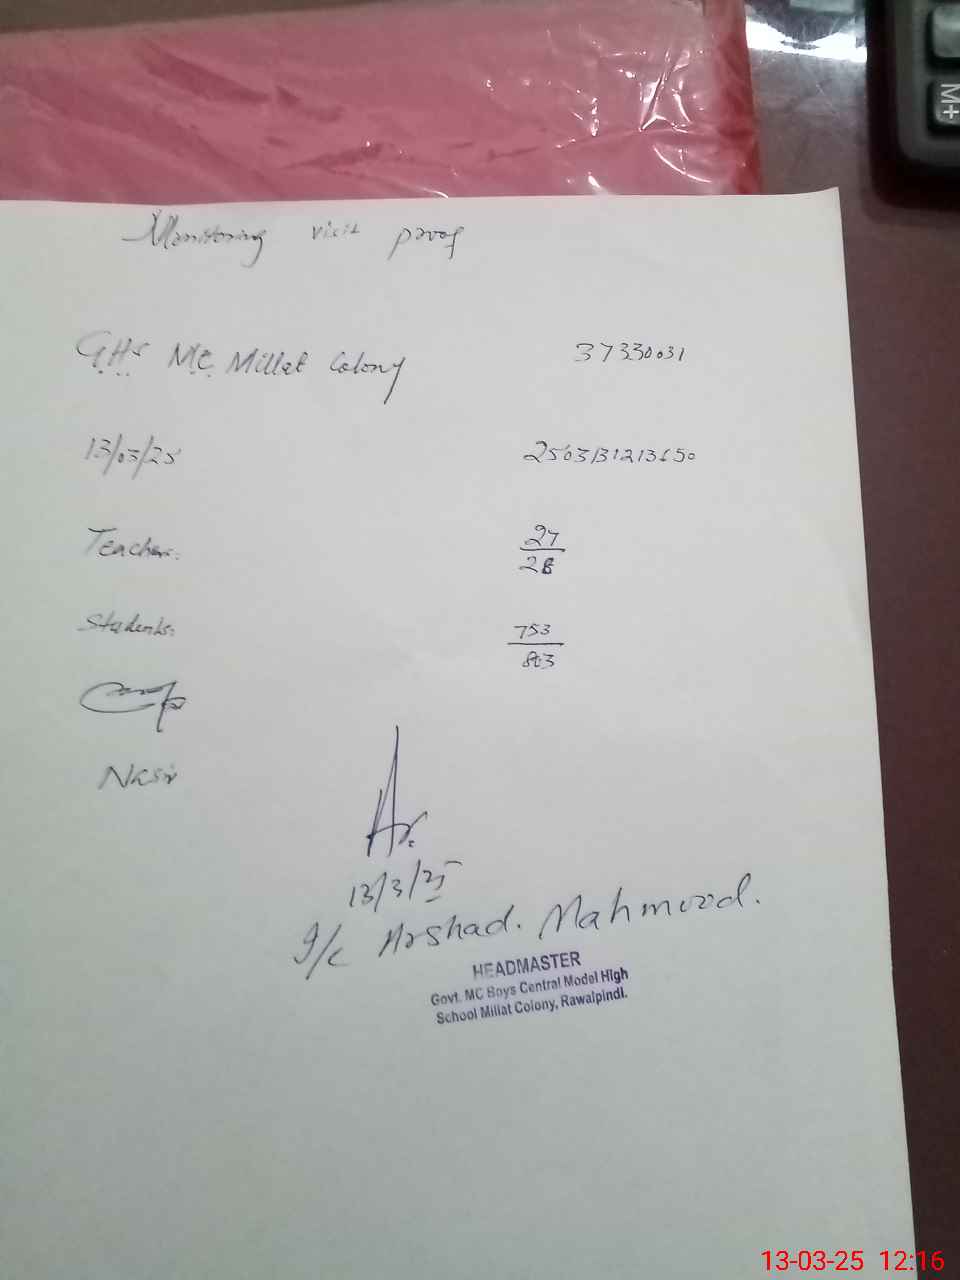 M+
Monitoring visit proof
GHS MC Millat Colony 37330031
13/03/25 2503131213650
Teachers: 27
28
Students: 753
803
Nasir
13/3/25
I/C Arshad. Mahmood.
HEADMASTER
Govt. MC Boys Central Model High
School Millat Colony, Rawalpindi.
13-03-25 12:16